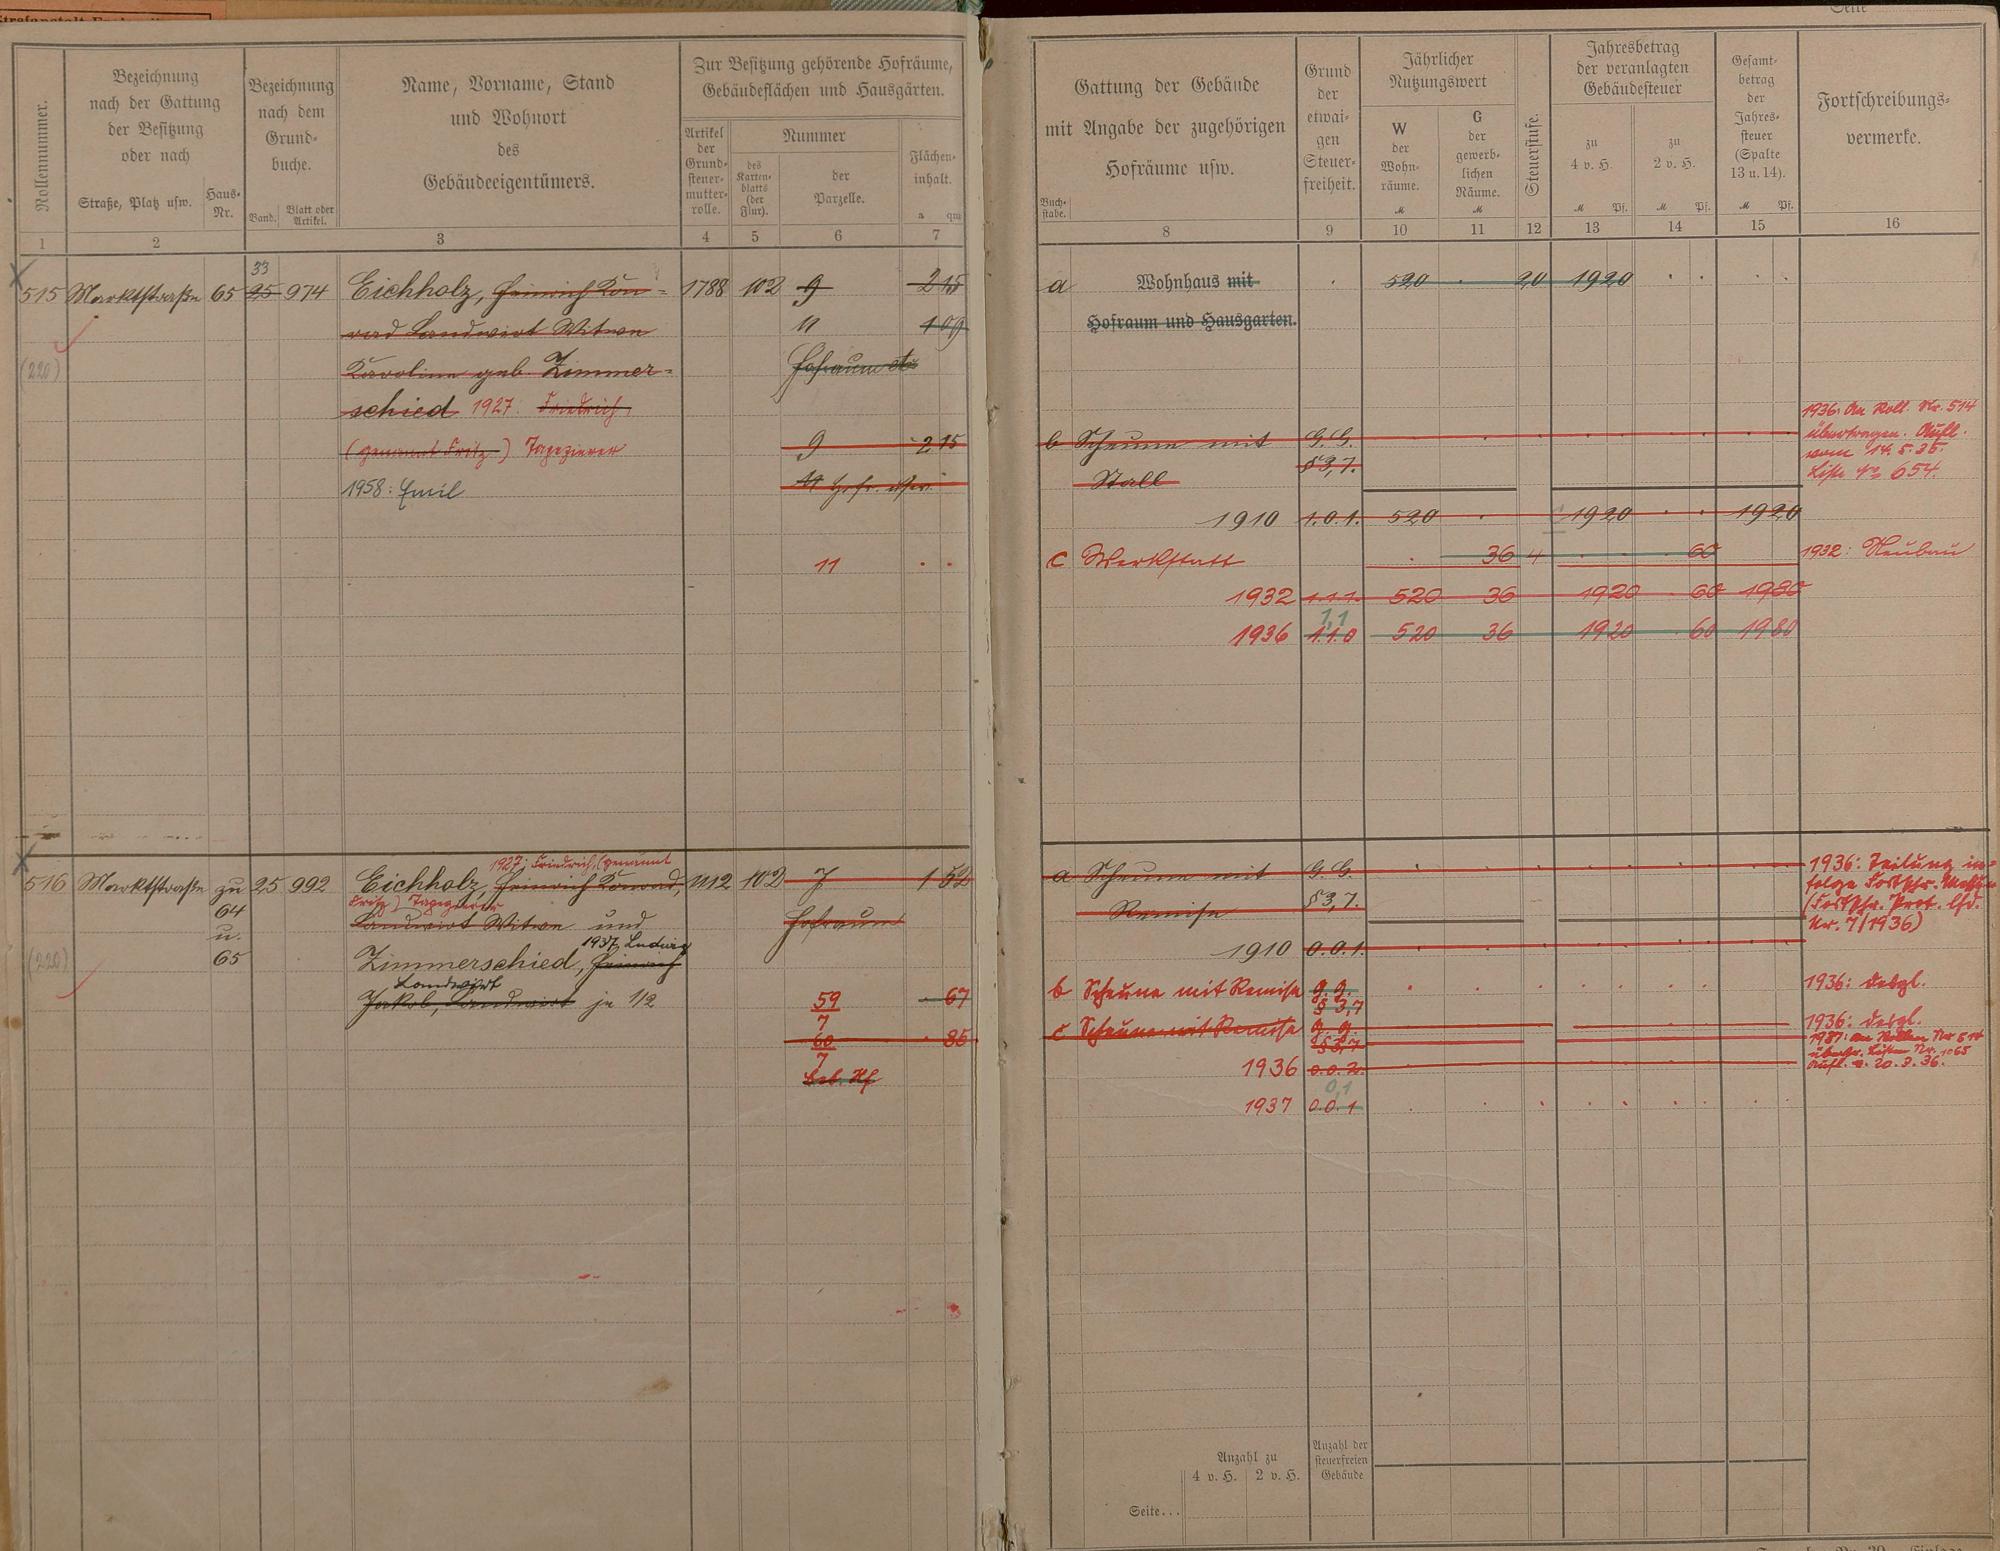 Strafanstalt
Seite
Rollennummer.
Bezeichnung
nach der Gattung
der Besitzung
oder nach
Straße, Platz usw.
Haus-
Nr.
Bezeichnung
nach dem
Grund-
buche.
Band.
Blatt oder
Artikel.
Name, Vorname, Stand
und Wohnort
des
Gebäudeeigentümers.
Zur Besitzung gehörende Hofräume,
Gebäudeflächen und Hausgärten.
Artikel
der
Grund-
steuer-
mutter-
rolle.
Nummer
des
Karten-
blatts
(der
Flur).
der
Parzelle.
Flächen-
inhalt.
a qm
1 2 3 4 5 6 7
Gattung der Gebäude
mit Angabe der zugehörigen
Hofräume usw.
Buch-
stabe.
Grund
der
etwai-
gen
Steuer-
freiheit.
Jährlicher
Nutzungswert
W
der
Wohn-
räume.
M
G
der
gewerb-
lichen
Räume.
M
Steuerstufe.
Jahresbetrag
der veranlagten
Gebäudesteuer
zu
4 v. H.
M Pf.
zu
2 v. H.
M Pf.
Gesamt-
betrag
der
Jahres-
steuer
(Spalte
13 u. 14).
M Pf.
Fortschreibungs-
vermerke.
8 9 10 11 12 13 14 15 16
33
515 Marktstraße 65 25 974 Eichholz, Heinrich Kon- 1788 102 9 2 15
rad Landwirt Witwe 11 1 09
(220) Karoline geb. Zimmer- Hofraum etc
schied 1927: Friedrich
(genannt Fritz) Tapezierer 9 2 15
1958: Emil 11 Hofr. usw.
11
a Wohnhaus mit 520 20 1920
Hofraum und Hausgarten.
b Scheune mit G.G.
Stall § 3,7.
1936: An Roll. Nr. 514
übertragen. Aufl.
vom 14.5.35.
Liste No 654.
1910 1.0.1. 520 1920 1920
c Werkstatt 36 4 60 1932: Neubau
1932 1.1.1. 520 36 1920 60 1980
1,1
1936 1.1.0 520 36 1920 60 1980
1927: Friedrich, (genannt
516 Marktstraße zu 25 992 Eichholz, Heinrich Konrad, 1112 102 7 1 52
Fritz) Tapezierer
64 Landwirt Witwe und Hofraum
u. 1937 Ludwig
(220) 65 Zimmerschied, Heinrich
Landwirt
Jakob, Landwirt je 1/2
59
7 67
60
7 85
beb. Hf
a Scheune mit G.G.
Remise § 3,7.
1936: Teilung in-
folge Fortschr.
(Fortschr. Prot. lfd.
Nr. 7/1936)
1910 0.0.1.
b Scheune mit Remise G.G. 1936: desgl.
§ 3,7
c Scheune mit Remise G.G. 1936: desgl.
§ 3,7
1937: an Rollen Nr 514
übertr. Liste Nr. 1065
Aufl. v. 20.3.36.
1936 0.0.2.
0,1
1937 0.0.1
Anzahl zu
4 v. H. 2 v. H.
Anzahl der
steuerfreien
Gebäude
Seite...